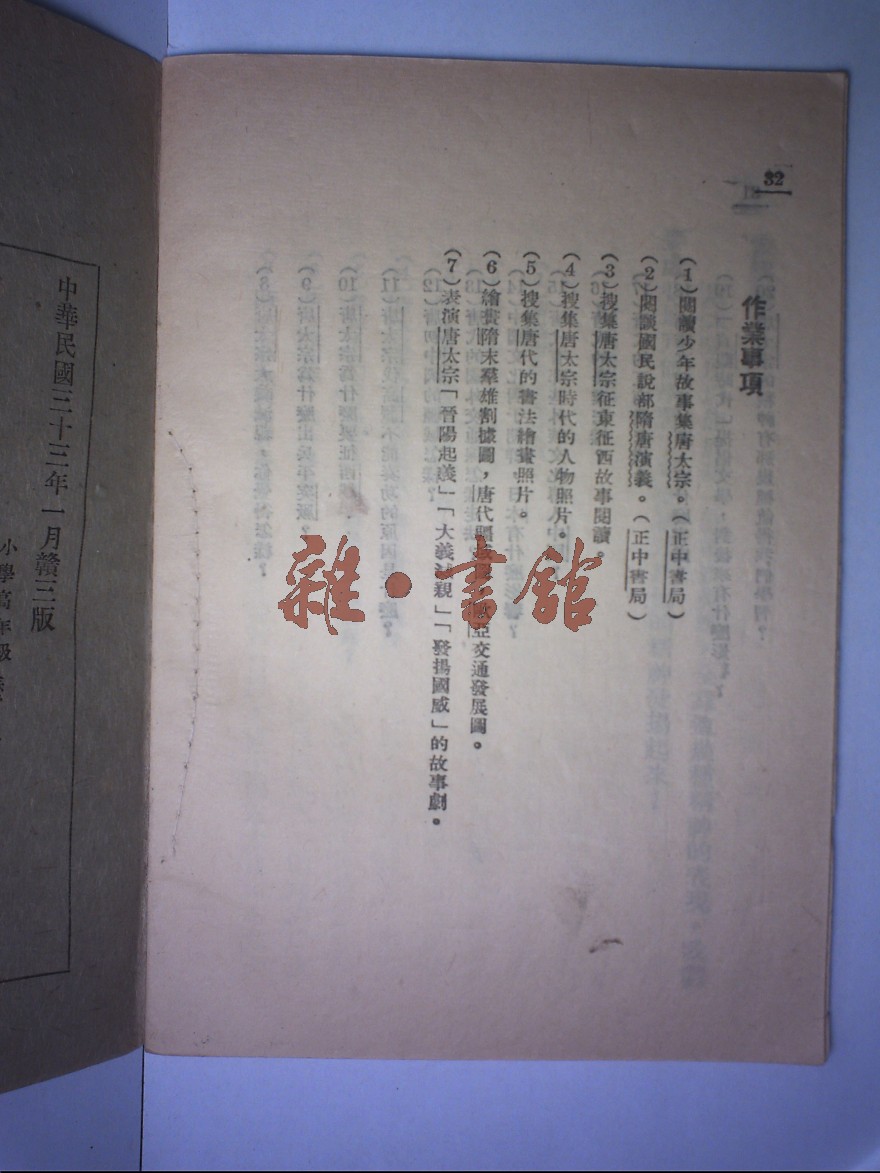 32
作業事項
(1)閱讀少年故事集唐太宗。(正中書局)
(2)閱讀國民說部隋唐演義。(正中書局)
(3)搜集唐太宗征東征西故事閱讀。
(4)搜集唐太宗時代的人物照片。
(5)搜集唐代的書法繪畫照片。
(6)繪畫隋末羣雄割據圖,唐代疆域圖,歐亞交通發展圖。
(7)表演唐太宗「晉陽起義」「大義滅親」「發揚國威」的故事劇。
中華民國三十三年一月贛三版
小學高年級
雜·書館